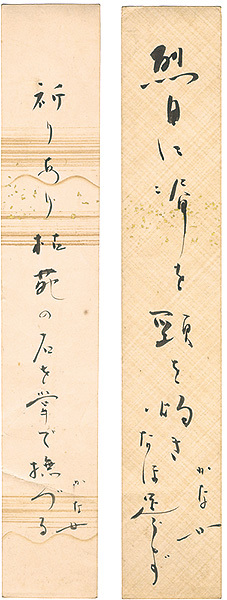 烈日に肩を頭を灼き
なほ
かな女
祈りあり枯苑の石を掌で撫づる
かな女